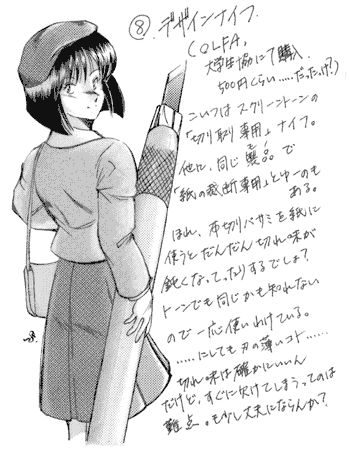 ⑧ デザインナイフ.
(OLFA,
大学生協にて購入.
500円くらい……だったっけ?)
こいつはスクリーントーンの
「切り取り専用」ナイフ。
他に、同じ製品で
「紙の裁断専用」とゆーのも
ある。
ほれ、布切りバサミを紙に
使うとだんだん切れ味が
鈍くなってったりするでしょ?
トーンでも同じかも知れない
ので一応使いわけている。
……にしても刃の薄いコト……
切れ味は確かにいいん
だけど、すぐに欠けてしまうってのは
難点。も少し丈夫にならんか?